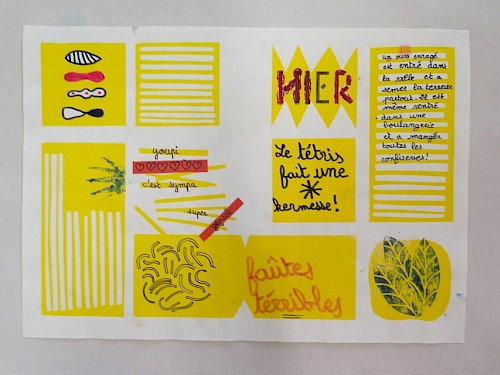 HIER
un ours enragé
est entré dans
la ville et a
semer la terreur
partout. Il est
même rentré
dans une
boulangerie
et a manger
toutes les
confiseries!
youpi
c'est sympa
super
Le tétris
fait une
kermesse!
faûtes
térribles